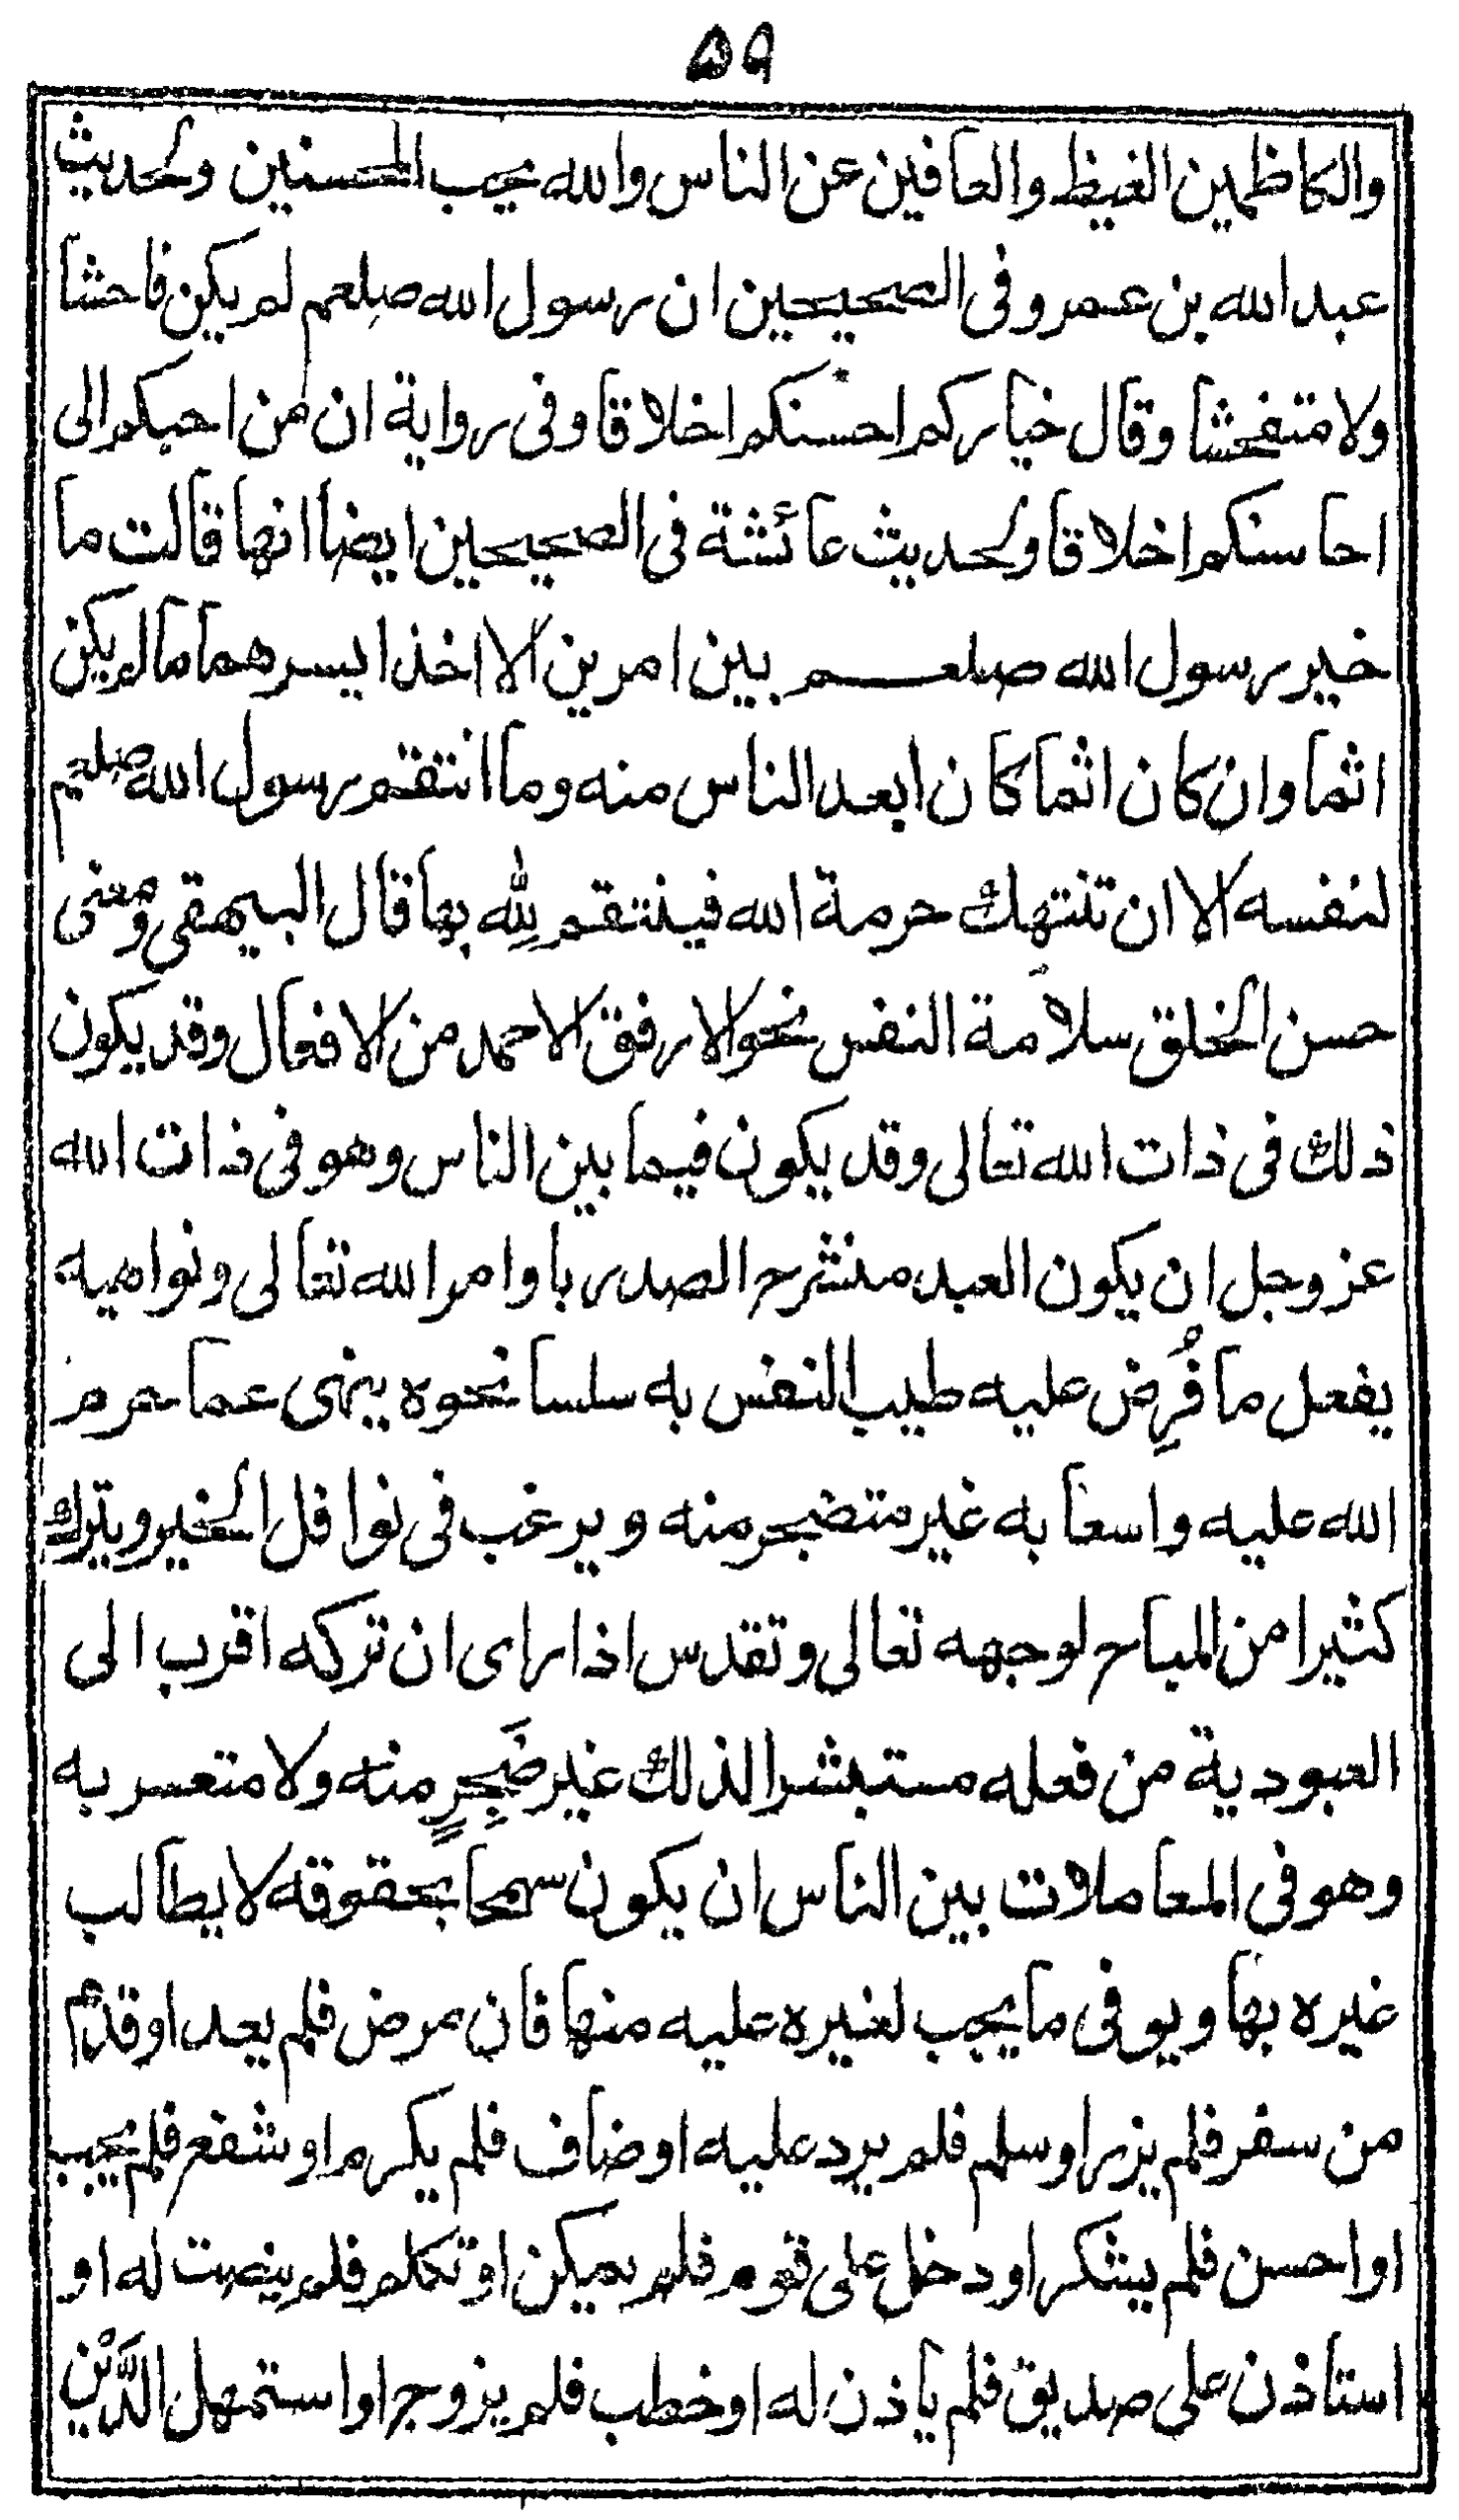 ٥٩
والكاظمين الغيظ والعافين عن الناس والله يحب المحسنين ولحديث
عبد الله بن عمرو فى الصحيحين ان رسول الله صلعم لم يكن فاحشا
ولا متفحشا وقال خياركم احسنكم اخلاقا وفى رواية ان من احبكم الى
احاسنكم اخلاقا ولحديث عائشة فى الصحيحين ايضا انها قالت ما
خير رسول الله صلعم بين امرين الا اخذ ايسرهما ما لم يكن
اثما وان كان اثما كان ابعد الناس منه وما انتقم رسول الله صلعم
لنفسه الا ان تنتهك حرمة الله فينتقم لِلّٰه بها قال البيهقى ومعنى
حسن الخلق سلامة النفس نحو الارفق الاحمد من الافعال وقد يكون
ذلك فى ذات الله تعالى وقد يكون فيما بين الناس وهو فى ذات الله
عز وجل ان يكون العبد منشرح الصدر باوامر الله تعالى ونواهيه
يفعل ما فُرِض عليه طيب النفس به سلسا نحوه ينهى عما حرم
الله عليه واسعا به غير متضجر منه ويرغب فى نوافل الخير ويترك
كثيرا من المباح لوجهه تعالى وتقدس اذا راى ان تركه اقرب الى
العبودية من فعله مستبشرا لذلك غير ضَجِرٍ منه ولا متعسر به
وهو فى المعاملات بين الناس ان يكون سمحا بحقوقه لا يطالب
غيره بها ويوفى ما يجب لغيره عليه منها فان مرض فلم يعد او قدم
من سفر فلم يزر او سلم فلم يرد عليه او ضاف فلم يكرم او شفع فلم يجب
او احسن فلم يشكر او دخل على قوم فلم يمكن او تكلم فلم ينصت له او
استاذن على صديق فلم ياذن له او خطب فلم يزوج او استمهل الدَّيْن